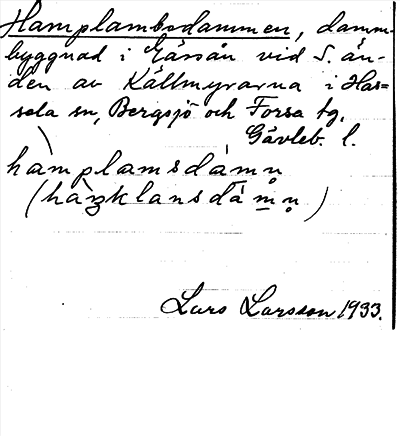 Hamplambodammen, damm-
byggnad i Gåssån vid S. än-
den av Källmyrarna i Has=
sela sn, Bergsjö och Forsa tg.
Gävleb. l.
hàmplamsdámn̥
(hàŋklansdám̲n̥)
Lars Larsson 1933.